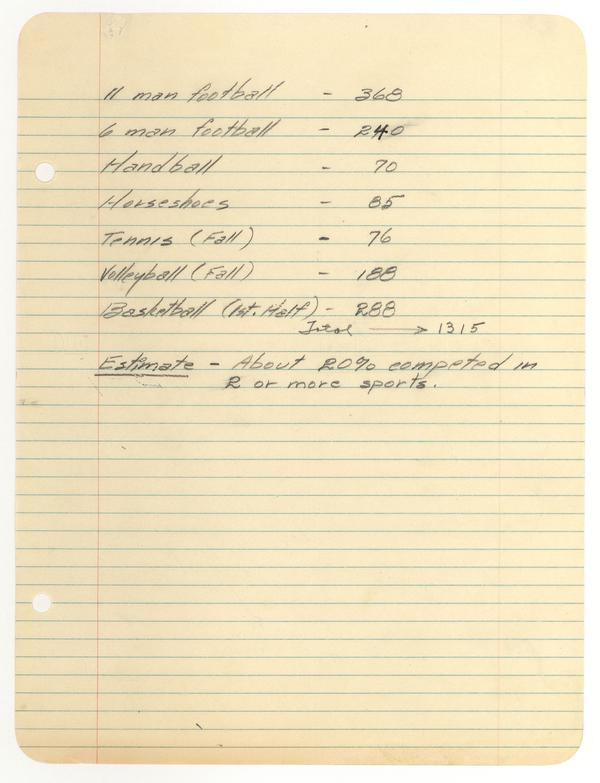 11 man football - 368
6 man football - 240
Handball - 70
Horseshoes - 85
Tennis (Fall) - 76
Volleyball (Fall) - 188
Basketball (1st. Half) - 288
Total → 1315
Estimate - About 20% competed in
2 or more sports.